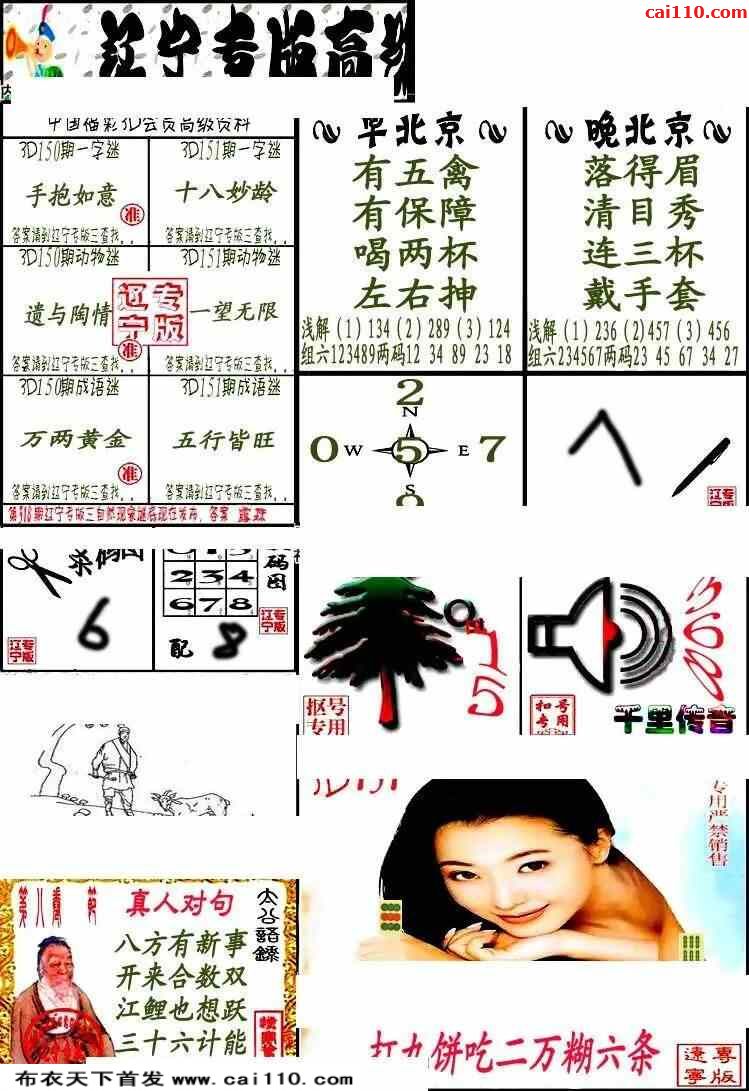 cai110.com
辽宁专版高级
中国福彩3D会员高级资料
3D150期一字谜
手抱如意
准
答案请到辽宁专版三查找..
3D151期一字谜
十八妙龄
答案请到辽宁专版三查找..
3D150期动物谜
遗与陶情
准
答案请到辽宁专版三查找..
3D151期动物谜
一望无限
答案请到辽宁专版三查找..
辽宁专版
3D150期成语谜
万两黄金
准
答案请到辽宁专版三查找..
3D151期成语谜
五行皆旺
答案请到辽宁专版三查找..
早北京
有五禽
有保障
喝两杯
左右抻
浅解(1)134(2)289(3)124
组六123489两码12 34 89 23 18
晚北京
落得眉
清目秀
连三杯
戴手套
浅解(1)236(2)457(3)456
组六234567两码23 45 67 34 27
2
N
0 W 5 E 7
S
辽宁专版
6
辽宁专版
码图
2 3 4
6 7 8
配 8
辽宁专版
抠号专用
扣号专用
千里传音
专用严禁销售
真人对句
太公语录
八方有新事
开来合数双
江鲤也想跃
三十六计能
打九饼吃二万糊六条
辽宁专版
布衣天下首发 www.cai110.com